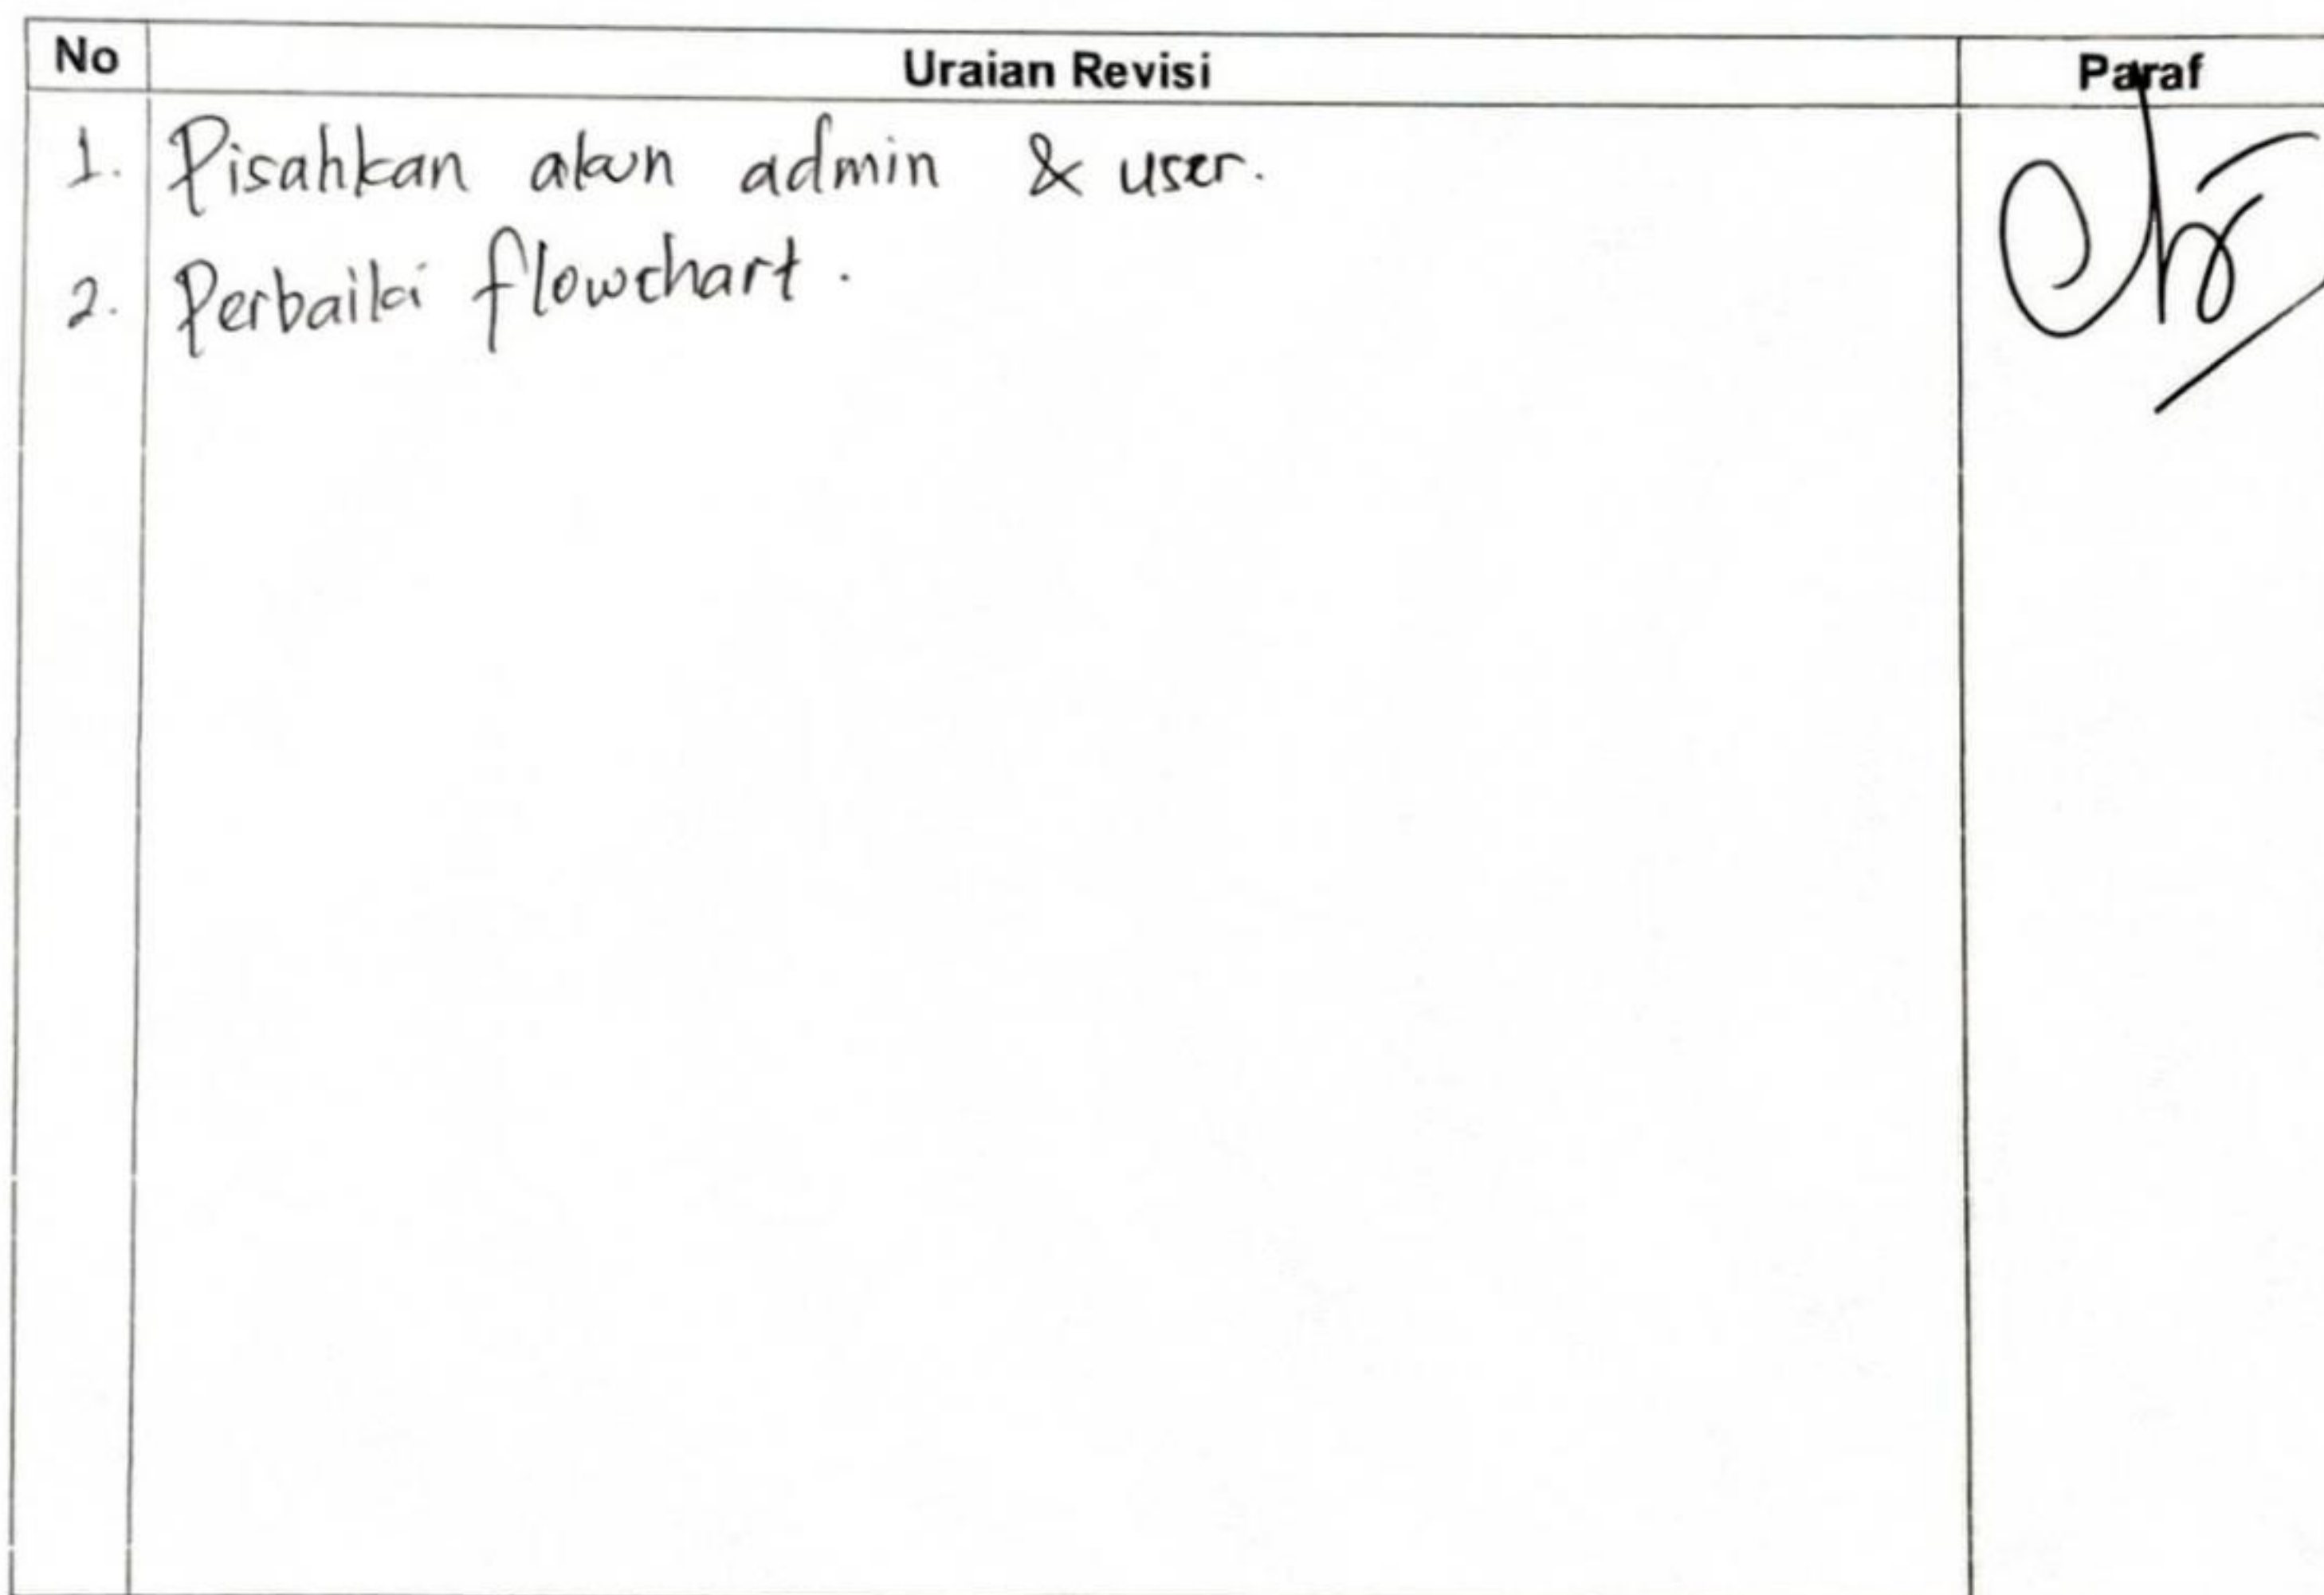 No Uraian Revisi Paraf
1. Pisahkan akun admin & user.
2. Perbaiki flowchart.